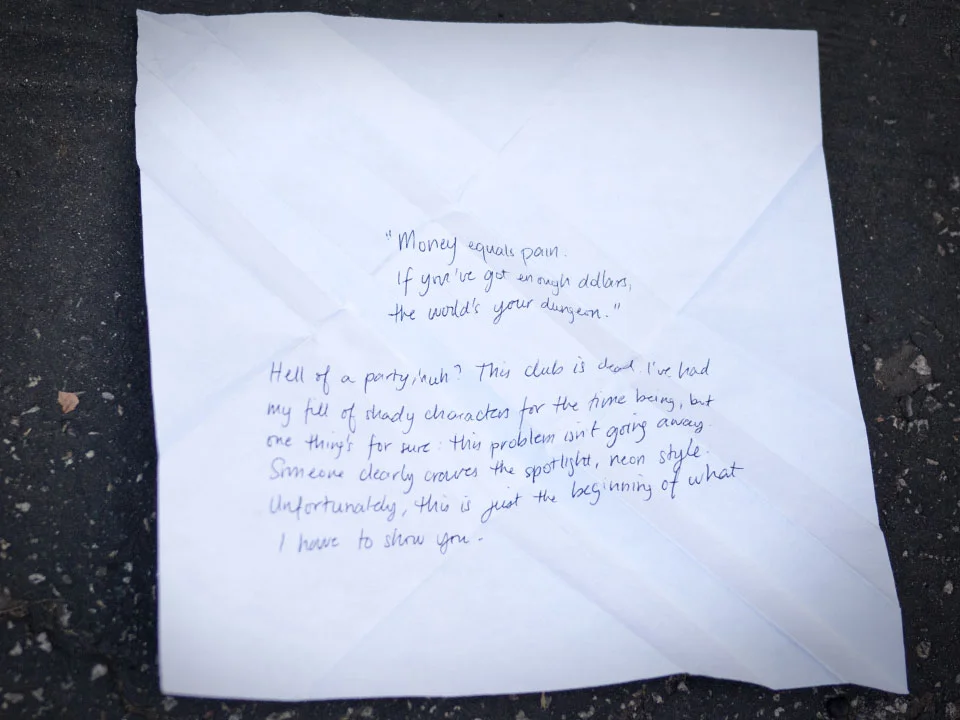 "Money equals pain.
If you've got enough dollars,
the world's your dungeon."
Hell of a party, huh? This club is dead. I've had
my fill of shady characters for the time being, but
one thing's for sure: this problem isn't going away.
Someone clearly craves the spotlight, neon style.
Unfortunately, this is just the beginning of what
I have to show you.